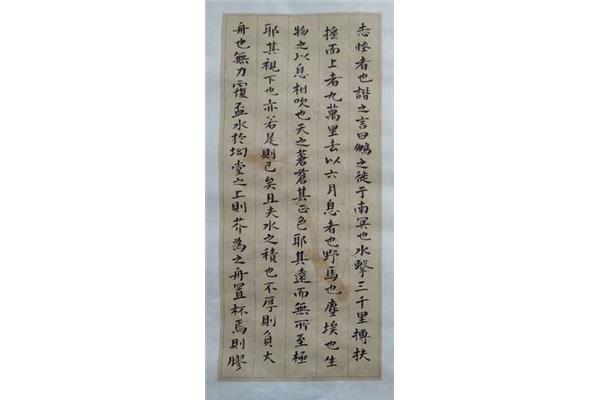 志怪者也諧之言曰鵬之徙于南冥也水擊三千里搏扶
摇而上者九萬里去以六月息者也野馬也塵埃也生
物之以息相吹也天之蒼蒼其正色耶其遠而無所至極
耶其視下也亦若是則已矣且夫水之積也不厚則負大
舟也無力覆盃水於坳堂之上則芥為之舟置杯焉則膠